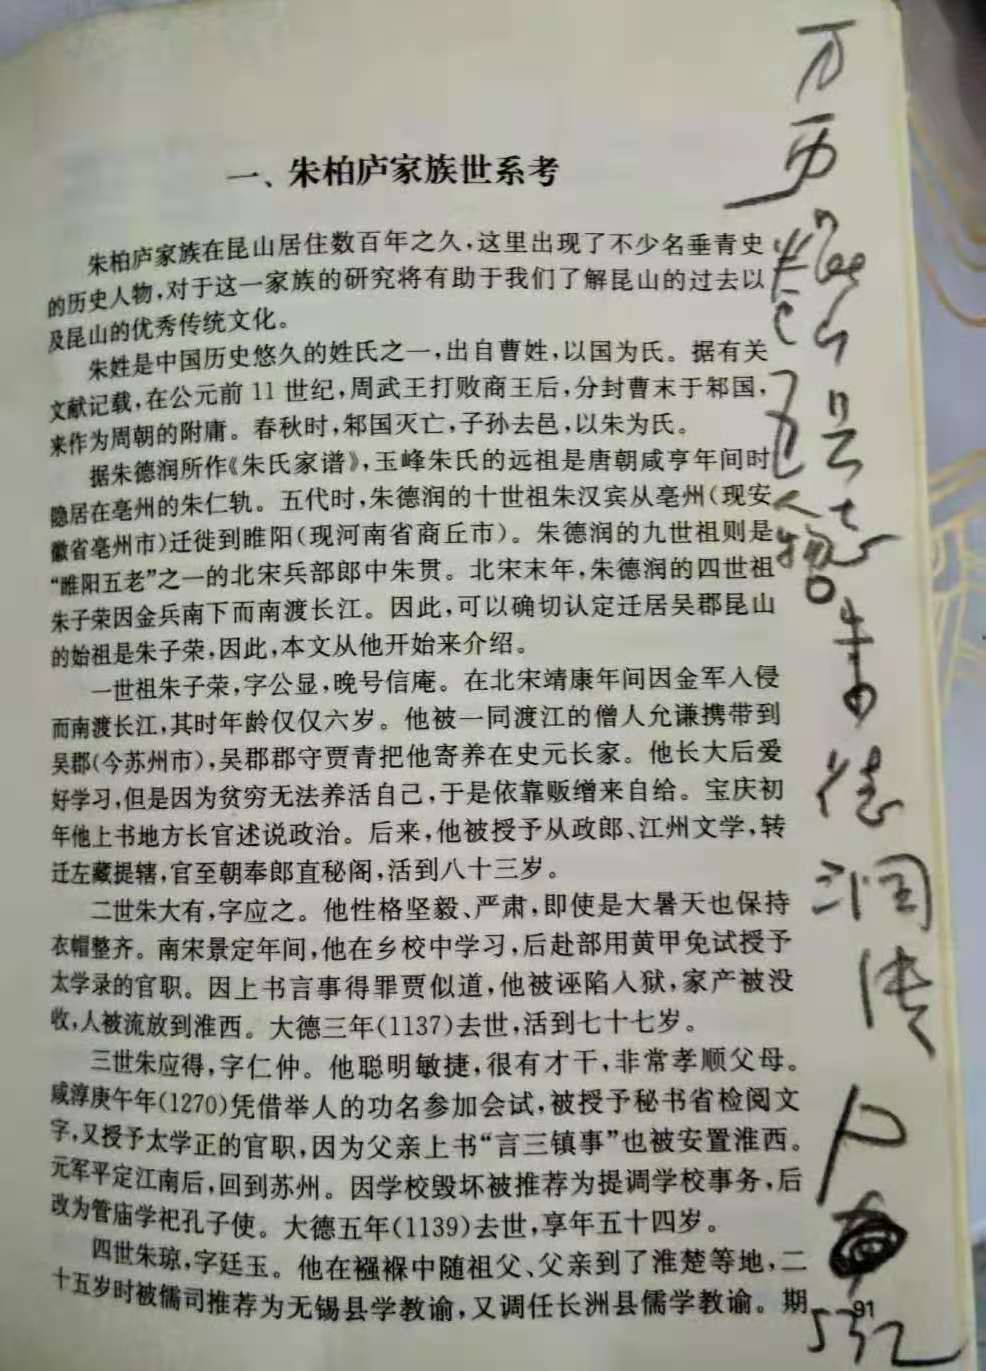 一、朱柏庐家族世系考
朱柏庐家族在昆山居住数百年之久,这里出现了不少名垂青史
的历史人物,对于这一家族的研究将有助于我们了解昆山的过去以
及昆山的优秀传统文化。
朱姓是中国历史悠久的姓氏之一,出自曹姓,以国为氏。据有关
文献记载,在公元前 11 世纪,周武王打败商王后,分封曹末于邾国,
来作为周朝的附庸。春秋时,邾国灭亡,子孙去邑,以朱为氏。
据朱德润所作《朱氏家谱》,玉峰朱氏的远祖是唐朝咸亨年间时
隐居在亳州的朱仁轨。五代时,朱德润的十世祖朱汉宾从亳州(现安
徽省亳州市)迁徙到睢阳(现河南省商丘市)。朱德润的九世祖则是
“睢阳五老”之一的北宋兵部郎中朱贯。北宋末年,朱德润的四世祖
朱子荣因金兵南下而南渡长江。因此,可以确切认定迁居吴郡昆山
的始祖是朱子荣,因此,本文从他开始来介绍。
一世祖朱子荣,字公显,晚号信庵。在北宋靖康年间因金军入侵
而南渡长江,其时年龄仅仅六岁。他被一同渡江的僧人允谦携带到
吴郡(今苏州市),吴郡郡守贾青把他寄养在史元长家。他长大后爱
好学习,但是因为贫穷无法养活自己,于是依靠贩缯来自给。宝庆初
年他上书地方长官述说政治。后来,他被授予从政郎、江州文学,转
迁左藏提辖,官至朝奉郎直秘阁,活到八十三岁。
二世朱大有,字应之。他性格坚毅、严肃,即使是大暑天也保持
衣帽整齐。南宋景定年间,他在乡校中学习,后赴部用黄甲免试授予
太学录的官职。因上书言事得罪贾似道,他被诬陷入狱,家产被没
收,人被流放到淮西。大德三年(1137)去世,活到七十七岁。
三世朱应得,字仁仲。他聪明敏捷,很有才干,非常孝顺父母。
咸淳庚午年(1270)凭借举人的功名参加会试,被授予秘书省检阅文
字,又授予太学正的官职,因为父亲上书“言三镇事”也被安置淮西。
元军平定江南后,回到苏州。因学校毁坏被推荐为提调学校事务,后
改为管庙学祀孔子使。大德五年(1139)去世,享年五十四岁。
四世朱琼,字廷玉。他在襁褓中随祖父、父亲到了淮楚等地,二
十五岁时被儒司推荐为无锡县学教谕,又调任长洲县儒学教谕。期
91
万历
昆山县志
人物
朱德润传